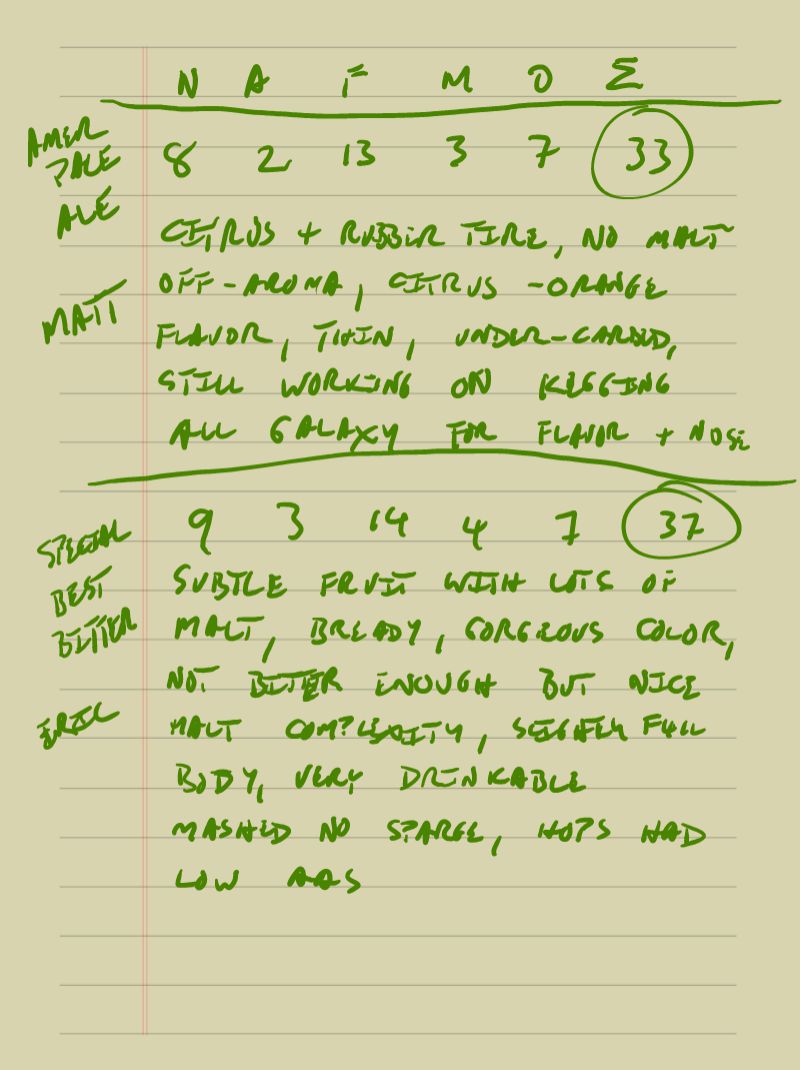 N A F M O Σ
AMER PALE ALE
8 2 13 3 7 33
CITRUS + RUBBER TIRE, NO MALT
OFF-AROMA, CITRUS -ORANGE
MATT
FLAVOR, THIN, UNDER-CARBED,
STILL WORKING ON KEGGING
ALL GALAXY FOR FLAVOR + NOSE
SPECIAL
9 3 14 4 7 37
BEST
SUBTLE FRUIT WITH LOTS OF
BITTER
MALT, BREADY, GORGEOUS COLOR,
NOT BITTER ENOUGH BUT NICE
ERIC
MALT COMPLEXITY, SLIGHTLY FULL
BODY, VERY DRINKABLE
MASHED NO SPARGE, HOPS HAD
LOW AAS